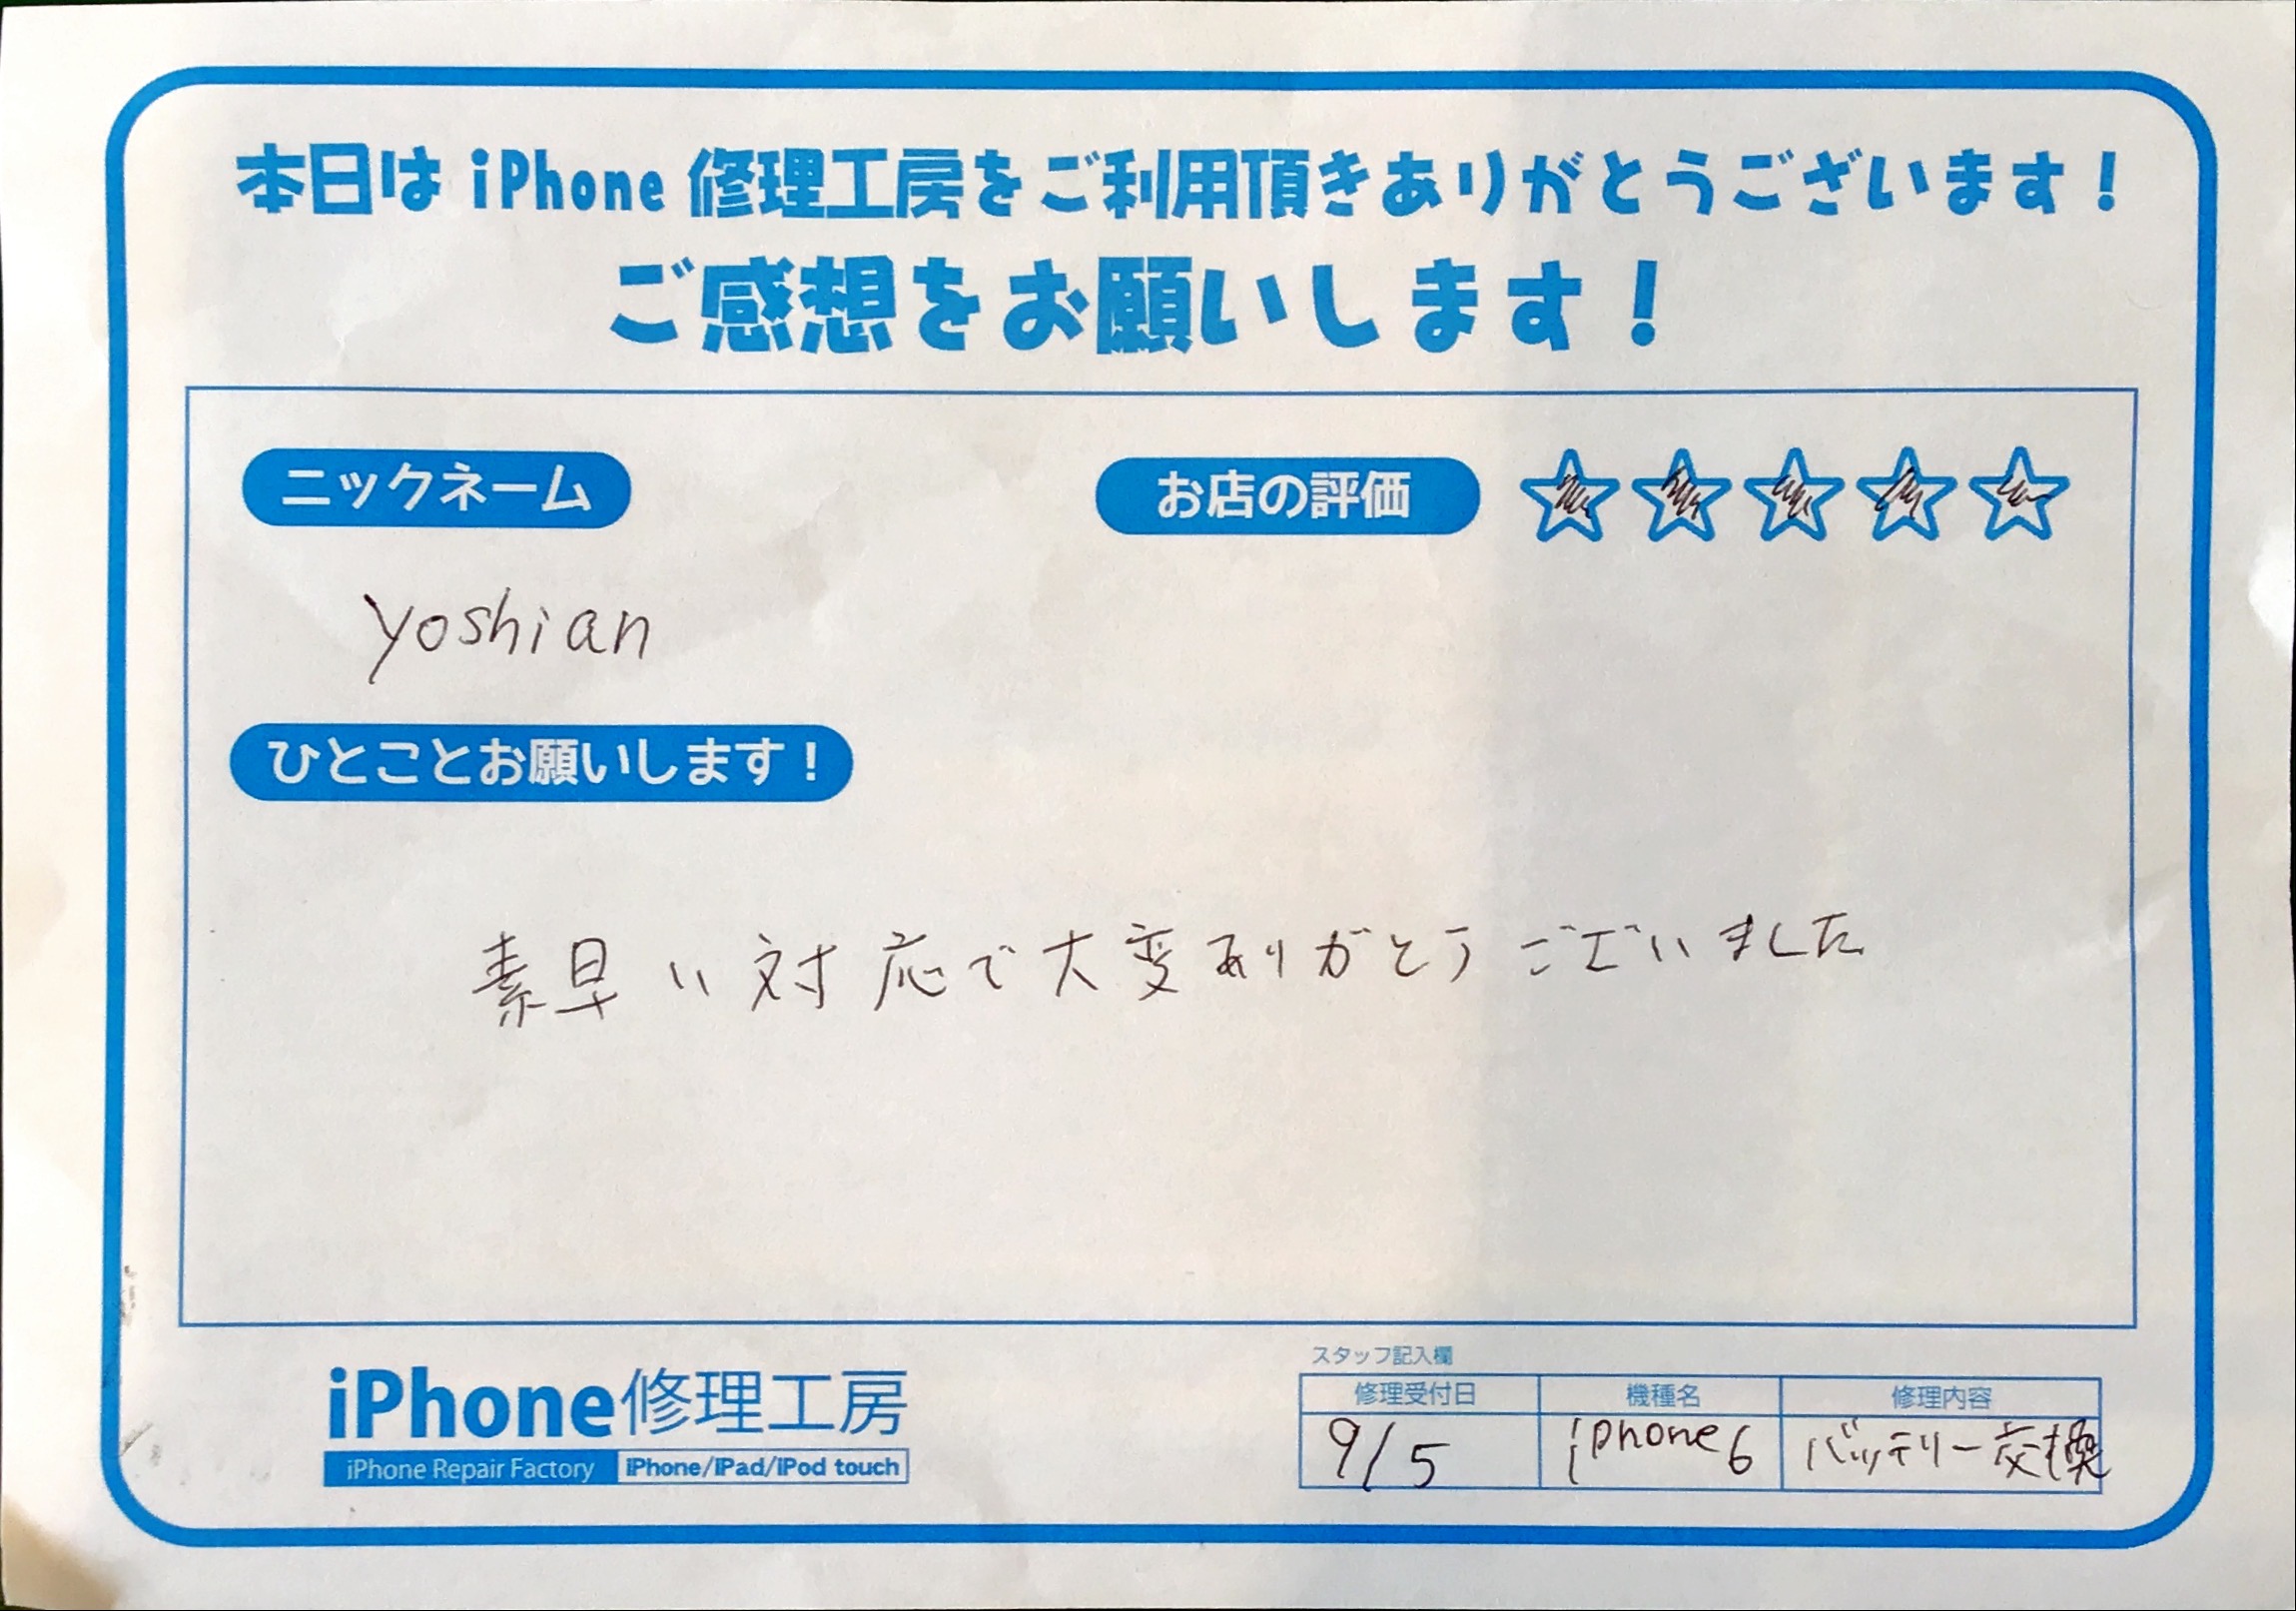 本日は iPhone 修理工房をご利用頂きありがとうございます！
ご感想をお願いします！
ニックネーム
お店の評価 ☆☆☆☆☆
yoshian
ひとことお願いします！
素早い対応で大変ありがとうございました
iPhone修理工房
iPhone Repair Factory iPhone/iPad/iPod touch
スタッフ記入欄
修理受付日 機種名 修理内容
9/5 iphone6 バッテリー交換